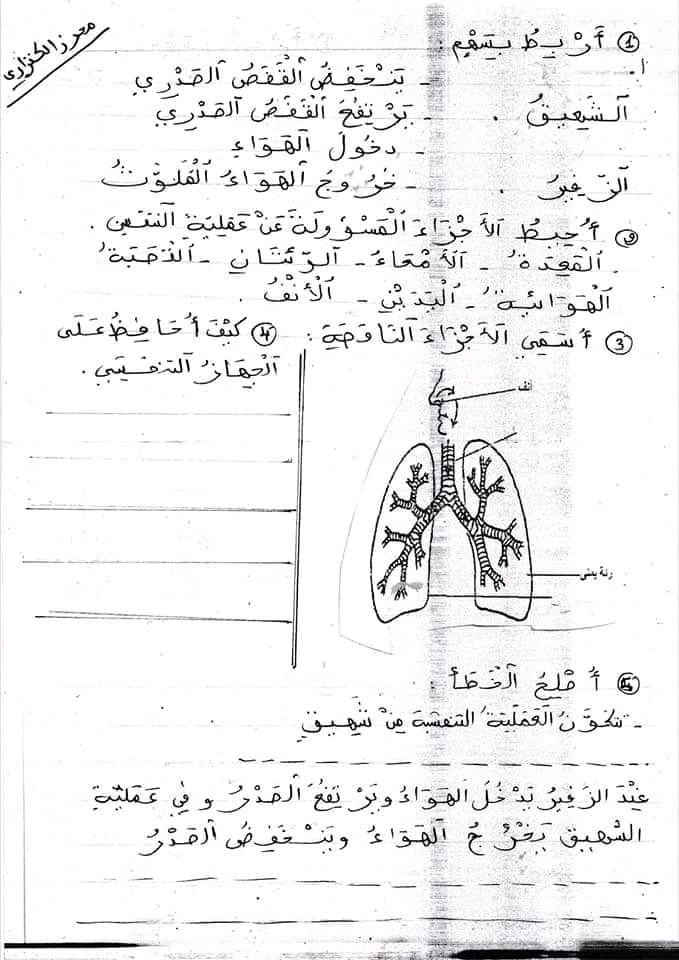 محرز الكنزاري
① أَرْبِطُ بِسَهْمٍ :
- يَنْخَفِضُ الْقَفَصُ الصَّدْرِي
الشَّهِيقُ . - يَرْتَفِعُ الْقَفَصُ الصَّدْرِي
- دخُولُ الهَوَاءِ
الزّفِيرُ . - خُرُوجُ الهَوَاءُ المُلَوَّثُ
② أُحِيطُ الأَجْزَاءَ الْمَسْؤولَةَ عَنْ عَمَلِيَّةِ التنفّسِ .
الْمَعِدَةُ - الأَمْعَاءُ - الرِّئَتَانِ - القَصَبَةُ
الْهَوَائِيةُ - الْيَدَيْنِ - الْأَنْفُ .
③ أُسَمِّي الأَجْزَاءَ النَّاقِصَةَ :
أنف
رئة يمنى
④ كَيْفَ أُحَافِظُ عَلَى
الْجِهَازُ التنفسِي .
⑤ أُصْلِحُ الْخَطَأَ :
- تتكوَّنُ العَمَلِيَّةُ التنفسيةُ مِنْ شَهِيقٍ
عِنْدَ الزّفِيرُ يَدْخُلُ الهَوَاءُ وَيَرْتَفِعُ الصَّدْرُ و فِي عَمَلِيَّةِ
الشّهِيقِ يَخْرُجُ الهَوَاءُ وَيَنْخَفِضُ الصَّدْرُ